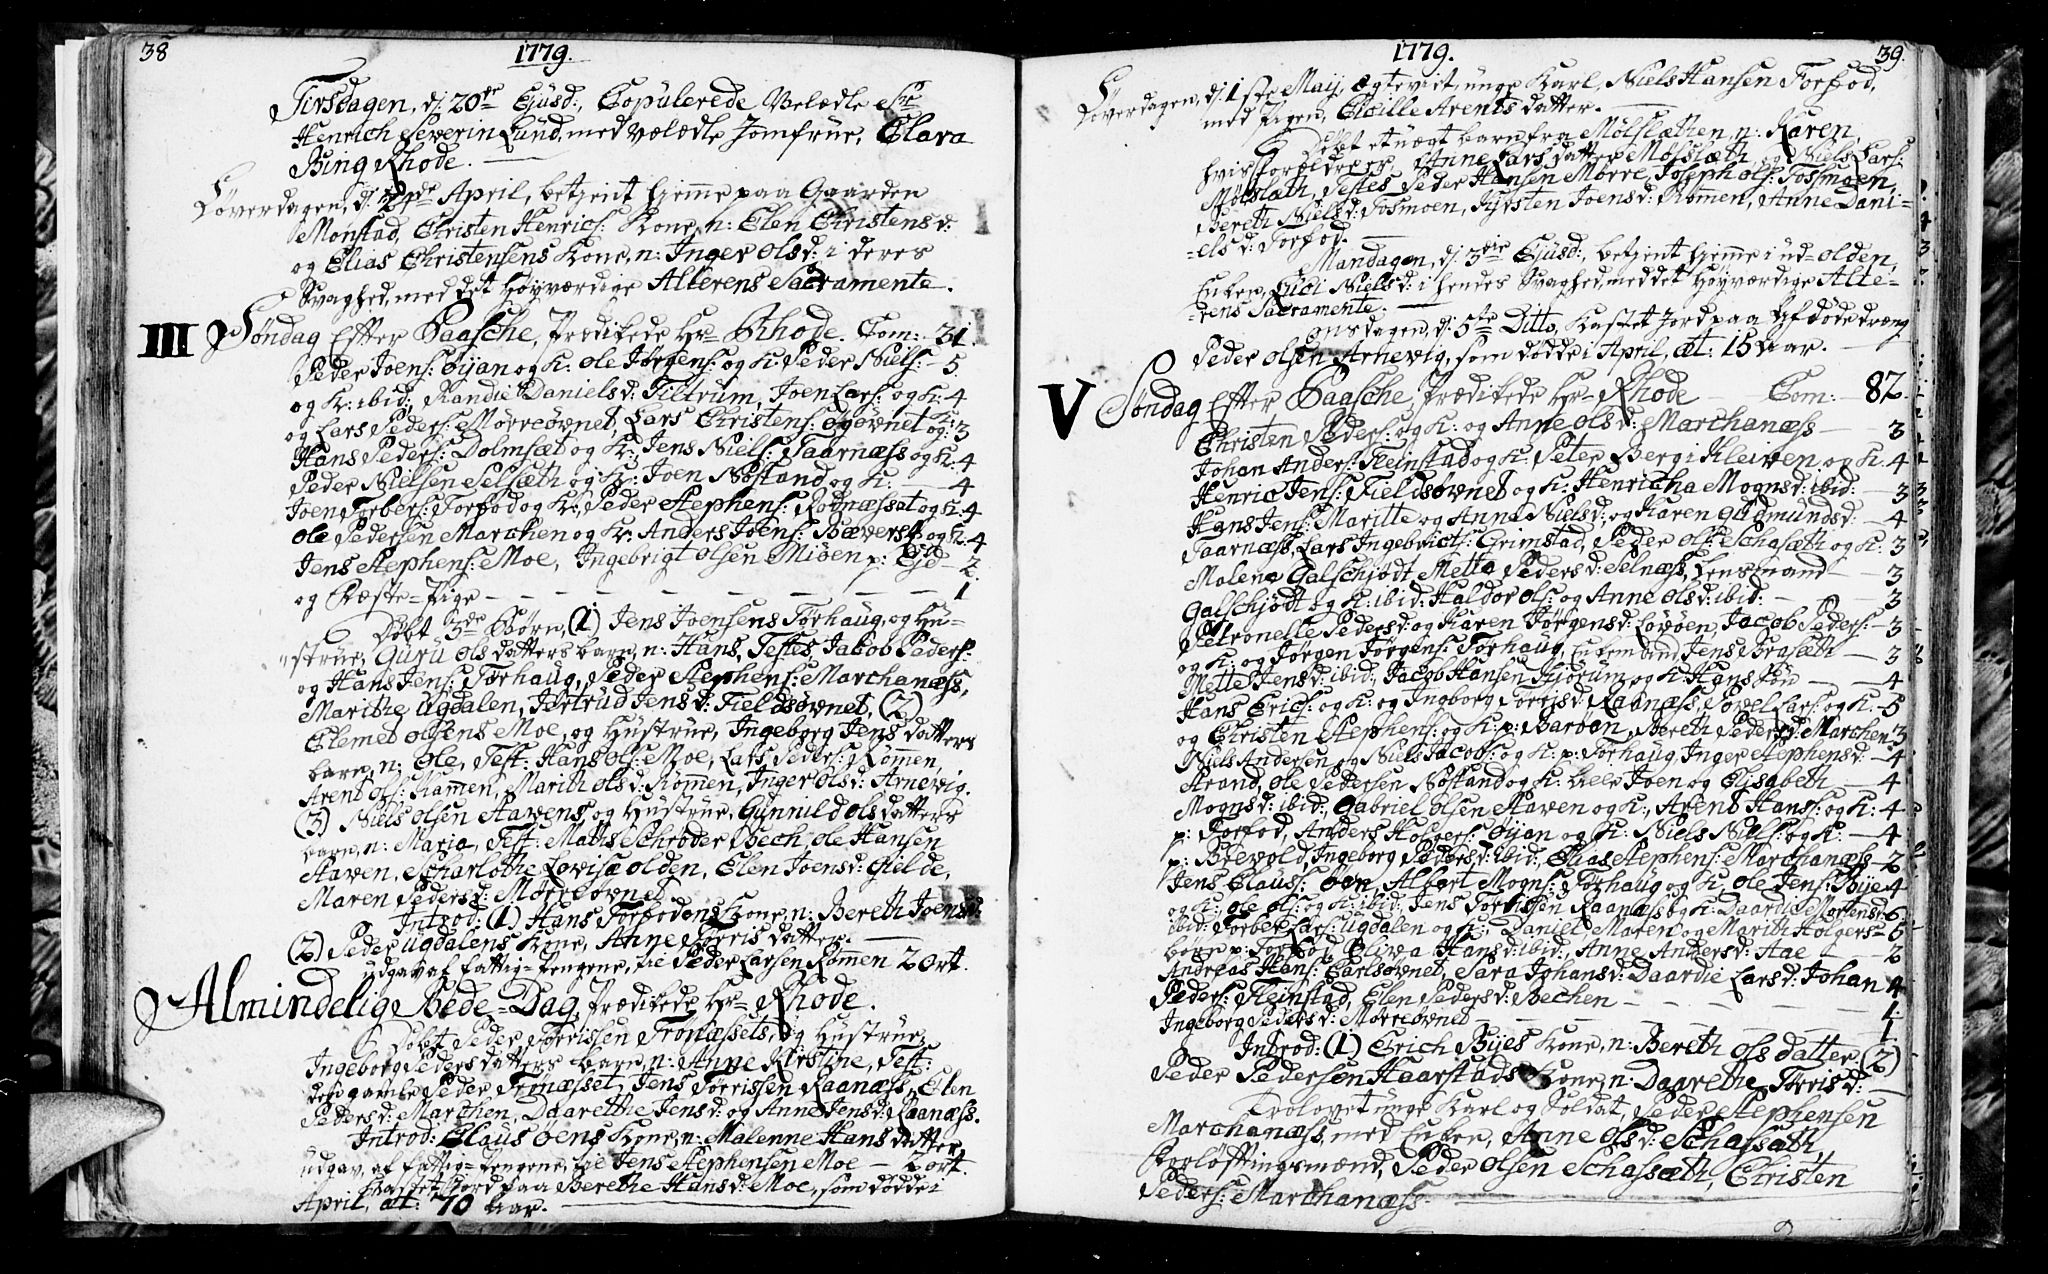 38
1779.
Tirsdagen, d: 20de Ejusd:, Copulerede Velædle Hr
Henrich Severin Lund, med Velædle Jomfrue, Clara
Bing Rhode.
Løverdagen, d: 24de April, betjent hjemme paa Gaarden
Monstad, Christen Henrics: Kone, n: Elen Christensd:
og Elias Christensens Kone, n: Inger Olsd: i deres
Svaghed, med det Høyværdige Alterens Sacramente.
III Søndag Efter Paasche, Prædikede Hr Rhode. Com: 31.
Peder Joens: Øÿan og K: Ole Jørgens: og K: Peder Niels: - 5
og K: ibid:, Randie Danielsd: Tiltrum, Joen Lars: og K: 4
og Lars Peders: Mørreøvnet, Lars Christens: Øyøvnet og K: 3
Hans Peders: Dolmsæt og K:, Jens Niels: Taarnæss og K: 4
Peder Nielsen Selsæth og K: Joen Nøstand og K: - 4
Joen Torbers: Torfod og K:, Peder Stephens: Rodnæsset og K: 4
Ole Pedersen Marchen og K: Anders Joens: Bæverst: og K: 4
Jens Stephens: Moe, Ingebrigt Olsen Miøen p: Eje - 2
og Fæste-Pige - - - - - - - - - 1
Døbt 3de Børn, (1) Jens Joensens Tørhaug, og Hu-
strue, Guru Olsdatters barn, n: Hans, Testes Jacob Peders:
og Hans Jens: Tørhaug, Peder Stephens: Marchanæss,
Marithe Ugdalen, Jertrud Jensd: Fieldsøvnet, (2)
Clemet Olsens Moe, og Hustrue, Ingeborg Jensdatters
barn, n: Ole, Test: Hans Ols: Moe, Lars Peders: Rømmen,
Arent Ols: Rammen, Marith Olsd: Rømmen, Inger Olsd: Arnevig.
(3) Niels Olsen Havens, og Hustrue, Gunnild Olsdatters
barn, n: Maria, Test: Mathis Schrøder Bech, Ole Hansen
Haven, Scharlothe Lovise Olden, Elen Joensd: Gielde,
Maren Pedersd: Mørreøvnet.
Introd: (1) Hans Torfodens Kone, n: Bereth Joensd:
(2) Peder Ugdalens Kone, Anne Torris datter.
udgav af Fattig-Pengene, til Peder Larsen Rømen 2 ort.
Almindelig Bede-Dag, Prædikede Hr Rhode.
Døbt Peder Torrissen Tronæssets, og Hustrue,
Ingeborg Peders datters barn, n: Anne Kirstine, Test:
den gamle Peder Tronæsset, Jens Torrissen Raanæss, Elen
Pedersd: Marchen, Daarethe Jensd: og Anne Jensd: Raanæss.
Introd: Claus Øens Kone, n: Malenne Hans datter.
udgav, af Fattig-Pengene, til Jens Stephensen Moe - 2 ort.
Kastet Jord paa Berethe Hansd: Moe, som døde i
April, æt: 70 Aar.
1779.
39.
Løverdagen, d: 1ste Maij, ægtevict, unge Karl, Niels Hansen Torfod,
med Pigen, Arents datter.
Døbt et uægt barn fra Mølslæthen, n: Karen,
hvis forældre er, Anne Larsdatter Mølslæth, og Niels Lars:
Mølslæth, Testes Peder Hansen Morre, Joseph Ols: Fosmoen,
Bereth Nielsd: Fosmoen, Kirsten Joensd: Rømen, Anne Dani-
-elsd: Torfod.
Mandagen, d: 3die Ejusd:, betjent hjemme i ud-olden,
Enken, Nielsd: i hendes Svaghed, med det Høyværdige Alte-
-rens Sacramente.
Onsdagen, d: 5te Ditto, Kastet Jord paa Afdøde dræng
Peder Olsen Arnevig, som døde i April, æt: 15 Aar.
V Søndag Efter Paasche, Prædikede Hr Rhode - Com: - 82.
Christen Peders: og K: og Anne Olsd: Marchanæss - 3
Johan Anders: Steinstad og K: Peter Berg i Kleiven og K: 4
Henric Jens: Fieldsøvnet og K: Henricha Mognsd: ibid: - 3
Hans Jens: Maritte og Anne Nielsd:, og Karen Gudmundsd: - 4
Taarnæss, Lars Ingebrict: Grimstad, Peder Ols: Schasæth og K: 3
Malena Galschjødt Metta Pedersd: Selnæss, Lensmand - 3
Galschjødt og K: ibid: Haldor Ols: og Anne Olsd: ibid: - 3
Petronelle Pedersd: og Karen Jørgensd: Løvøen, Jacob Peders: - 3
og K: og Jørgen Jørgens: Tørhaug, Enkemand Jens Brasæth - 3
Mette Jensd: ibid:, Jacob Hansen Kjørum og K: Hans Søn - 4
Hans Erics: og K: og Ingeborg Torrisd: Raanæss, Povel Lars: og K: 5
og Christen Stephens: og K: p: Barøen, Bereth Pedersd: Marchen 3
Niels Andersen og Niels Jacobs: og K: p: Tørhaug, Inger Stephensd: - 4
Strand, Ole Pedersen Nøstand og K: Joen og Elisabeth - 4
Mognsd: ibid:, Gabriel Olsen Staven og K:, Arent Hans: og K: 4
p: Torfod, Anders Holgers: Øÿan og K: Niels Niels: og K: - 4
p: Brevold, Ingeborg Pedersd: ibid:, Elias Stephens: Marchanæss - 2
Jens Claus: Øen, Albert Mogns: Tørhaug og K: Ole Jens: Bÿe 4
og K: Ole Ols: og K: ibid:, Jens Torrissen Raanæss og K: Daardie Mortensd: 6
ibid: Torber Lars: Ugdalen og K:, Daniel Maren og Marith Holgers- 5
børn p: Torfod, Oliva Hansd: ibid:, Anne Andersd: Hae - 2
Andreas Hans: Carlsøvnet, Sara Johansd: Daardie Larsd: Johan 4
Peders: Steinstad, Elen Pedersd: Bechen - - - - 1.
Ingeborg Pedersd: Mørreøvnet - - - - - - 1.
Introd: (1) Erich Bÿes Kone, n: Bereth Olsdatter, (2)
Peder Pedersen Haarstads Kone, n: Daarethe Torrisd:
Trolovet unge Karl og Soldat, Peder Stephensen
Marchanæss, med Enken, Anne Olsd: Schassæth,
Forløftingsmænd, Peder Olsen Schassæth, Christen
Peders: Marchanæss.